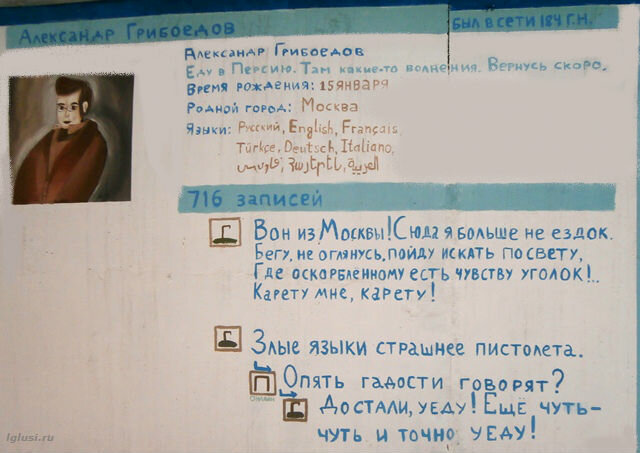 Александр Грибоедов
был в сети 184 г.н.
Александр Грибоедов
Еду в Персию. Там какие-то волнения. Вернусь скоро.
Время рождения: 15 января
Родной город: Москва
Языки: Русский, English, Français,
Türkçe, Deutsch, Italiano,
فارسی, Հայերեն, العربية
716 записей
Вон из Москвы! Сюда я больше не ездок.
Бегу, не оглянусь, пойду искать по свету,
Где оскорблённому есть чувству уголок!..
Карету мне, карету!
Злые языки страшнее пистолета.
П Опять гадости говорят?
Онлайн
Достали, уеду! Ещё чуть-
чуть и точно уеду!
Iglusi.ru